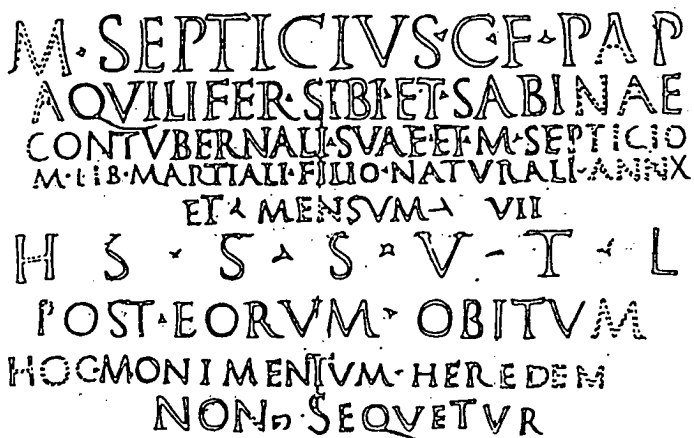 M · SEPTICIVS · C · F · PAP
AQVILIFER · SIBI · ET · SABINAE
CONTVBERNALI · SVAE · ET · M · SEPTICIO
M · LIB · MARTIALI · FILIO · NATVRALI · ANN X
ET · MENSVM · VII
H S · S · S · V · T · L
POST · EORVM · OBITVM
HOC · MONIMENTVM · HEREDEM
NON · SEQVETVR